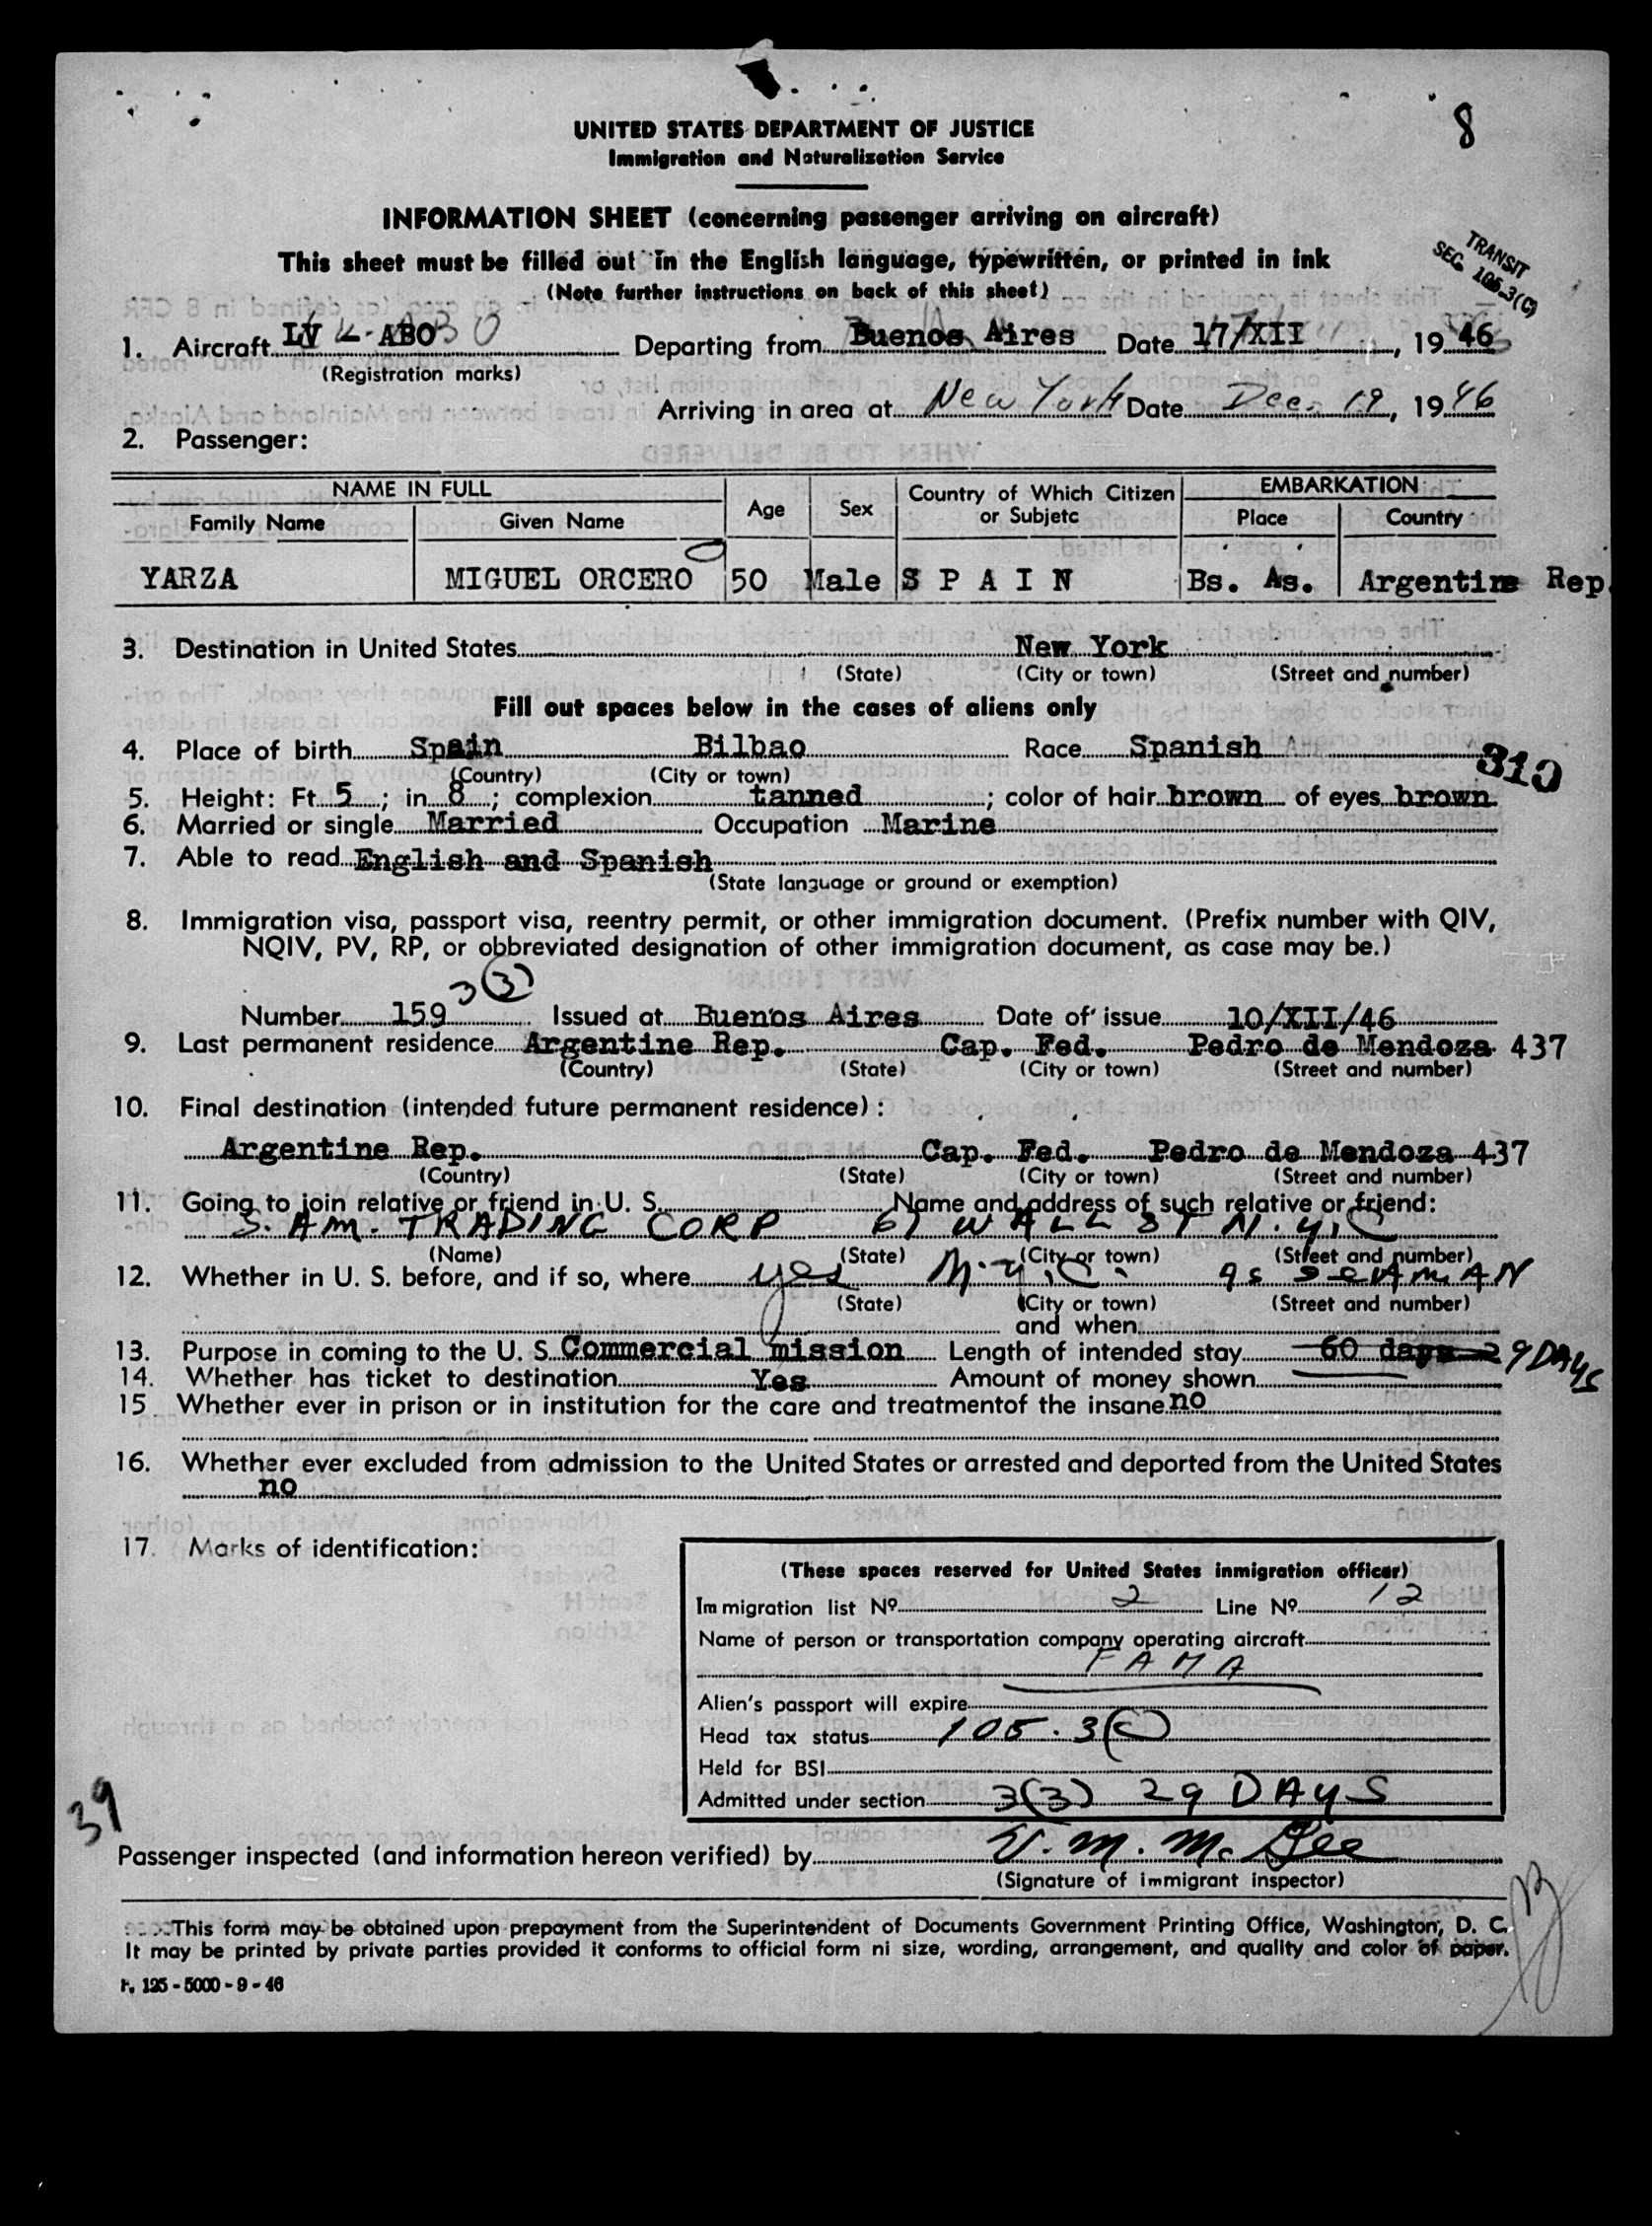 8
UNITED STATES DEPARTMENT OF JUSTICE
Immigration and Naturalization Service
INFORMATION SHEET (concerning passenger arriving on aircraft)
This sheet must be filled out in the English language, typewritten, or printed in ink
(Note further instructions on back of this sheet)
TRANSIT
SEC. 105.3(C)
1. Aircraft LV ABO Departing from Buenos Aires Date 17/XII, 1946
(Registration marks)
Arriving in area at New York Date Dec. 19, 1946
2. Passenger:
NAME IN FULL Age Sex Country of Which Citizen or Subjetc EMBARKATION
Family Name Given Name Place Country
YARZA MIGUEL ORCERO 50 Male S P A I N Bs. As. Argentine Rep.
3. Destination in United States New York
(State) (City or town) (Street and number)
Fill out spaces below in the cases of aliens only
4. Place of birth Spain Bilbao Race Spanish
310
(Country) (City or town)
5. Height: Ft. 5; in 8; complexion tanned; color of hair brown of eyes brown
6. Married or single Married Occupation Marine
7. Able to read English and Spanish
(State language or ground or exemption)
8. Immigration visa, passport visa, reentry permit, or other immigration document. (Prefix number with QIV,
NQIV, PV, RP, or obbreviated designation of other immigration document, as case may be.)
3(3)
Number 159 Issued at Buenos Aires Date of issue 10/XII/46
9. Last permanent residence Argentine Rep. Cap. Fed. Pedro de Mendoza 437
(Country) (State) (City or town) (Street and number)
10. Final destination (intended future permanent residence):
Argentine Rep. Cap. Fed. Pedro de Mendoza 437
(Country) (State) (City or town) (Street and number)
11. Going to join relative or friend in U. S. Name and address of such relative or friend:
S. AM. TRADING CORP 61 WALL ST N.Y.C
(Name) (State) (City or town) (Street and number)
12. Whether in U. S. before, and if so, where yes N.Y.C. as SEAMAN
(State) (City or town) (Street and number)
and when
13. Purpose in coming to the U. S. Commercial mission Length of intended stay 60 days 29 DAYS
14. Whether has ticket to destination Yes Amount of money shown
15. Whether ever in prison or in institution for the care and treatmentof the insane no
16. Whether ever excluded from admission to the United States or arrested and deported from the United States
no
17. Marks of identification:
(These spaces reserved for United States inmigration officer)
Immigration list Nº 2 Line Nº 12
Name of person or transportation company operating aircraft
FAMA
Alien's passport will expire
Head tax status 105.3(C)
Held for BSI
Admitted under section 3(3) 29 DAYS
39
Passenger inspected (and information hereon verified) by
(Signature of immigrant inspector)
This form may be obtained upon prepayment from the Superintendent of Documents Government Printing Office, Washington, D. C.
It may be printed by private parties provided it conforms to official form ni size, wording, arrangement, and quality and color of paper.
F. 125 - 5000 - 9 - 46